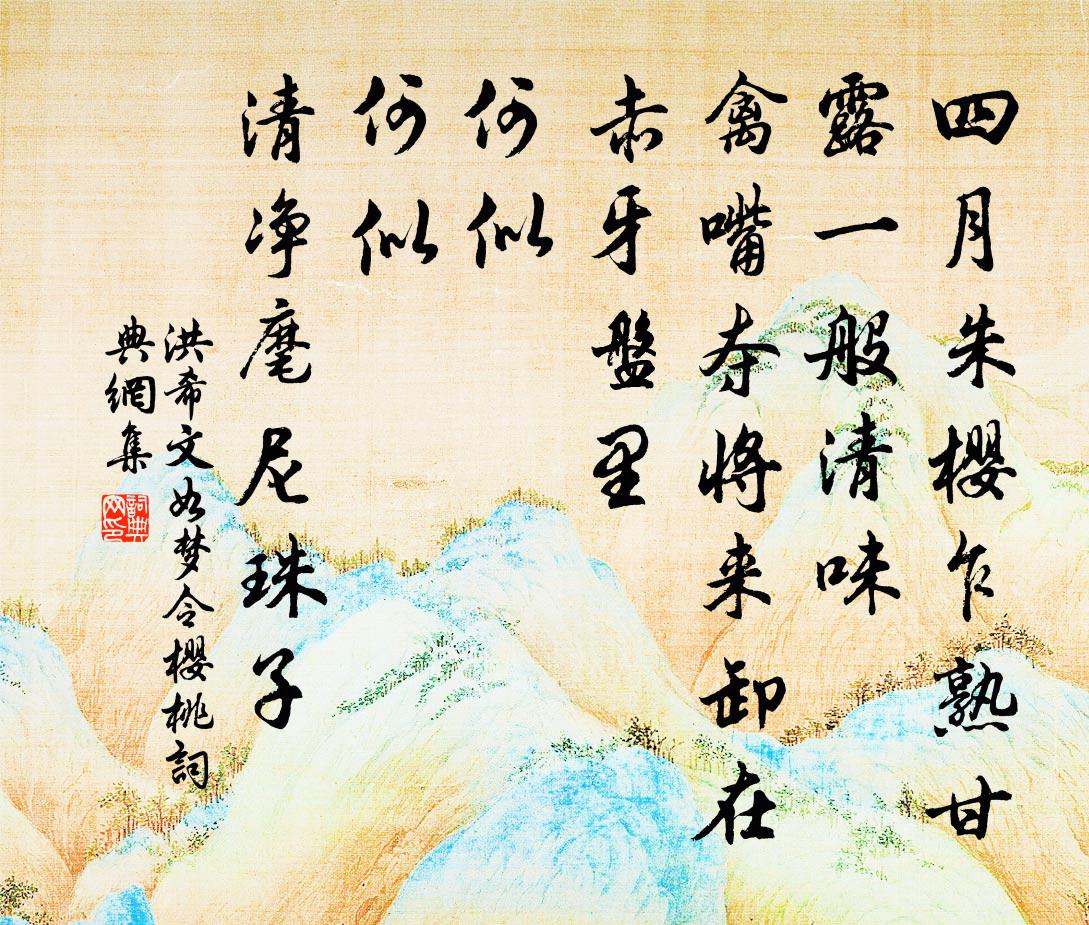 四月朱樱乍熟甘
露一般清味
禽嘴夺将来卸在
赤牙盤里
何似
何似
清净麾尼珠子
洪希文如梦令樱桃詞
典網集
詞典网印